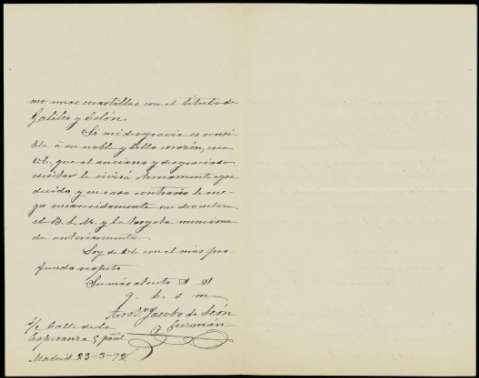 mo unas cuartillas con el título de
Galileo y Colón.
Si mi desgracia es sensi
ble á su noble y bello corazón, crea
Vd. que el anciano y desgraciado
escritor le vivirá eternamente agra
decido y en caso contrario le rue
go encarecidamente me devuelva
el B. L. M. y la tarjeta menciona
da anteriormente.
Soy de Vd. con el más pro
fundo respeto
Su más atento S. S.
q. b. s. m.
Jacobo de León
y Guzmán
S/c Calle de la
Esperanza 5 pral
Madrid 23-3-92